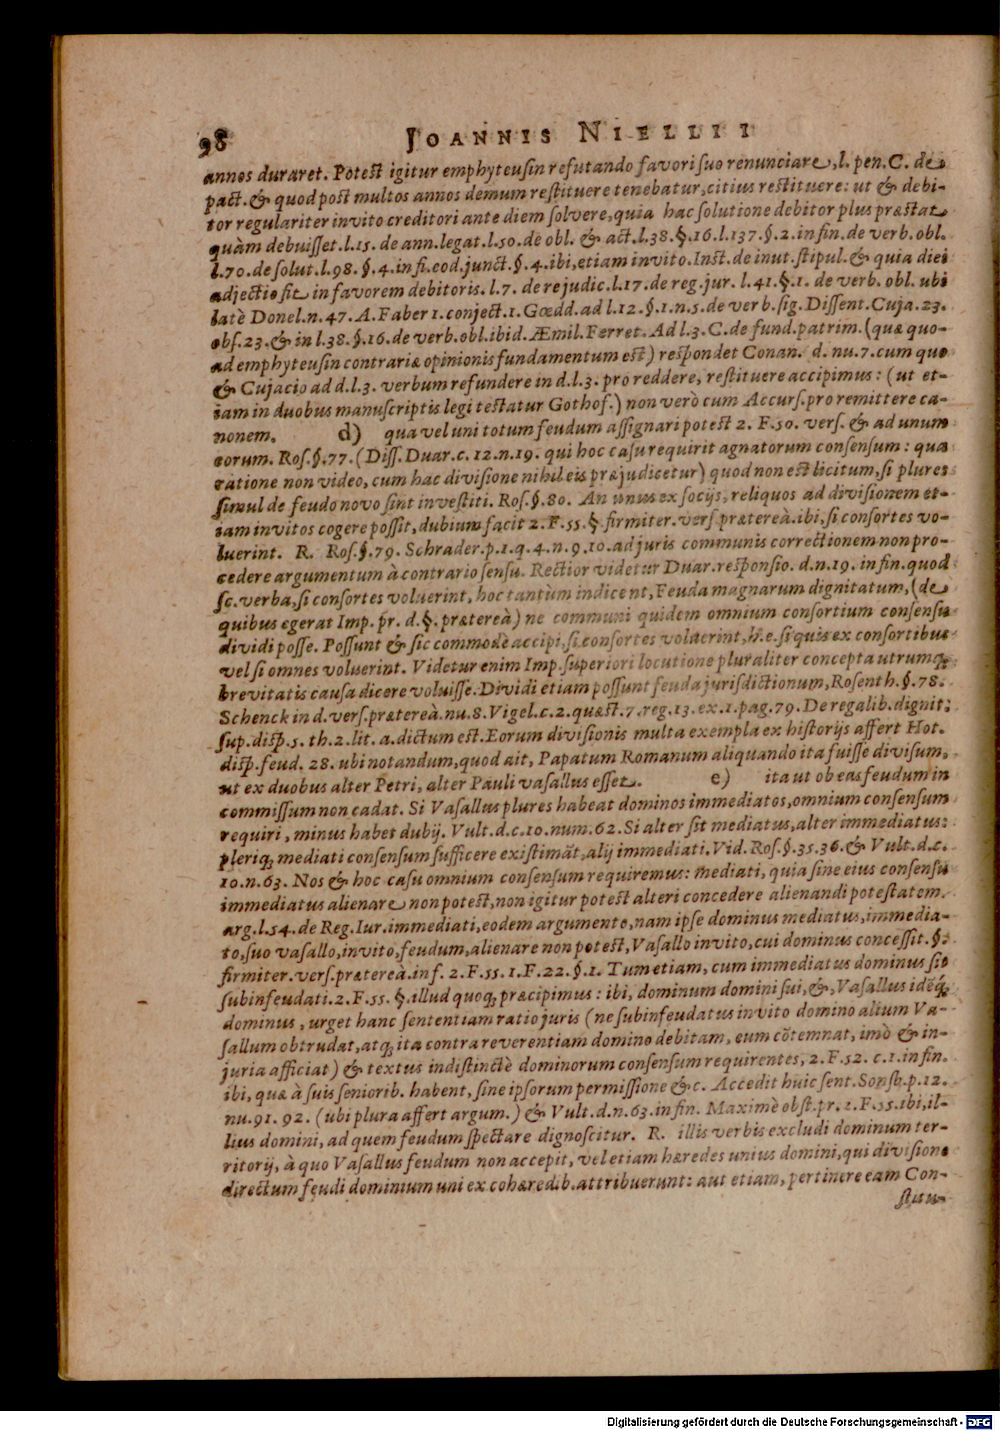 98 JOANNIS NIELLII
annos duraret. Potest igitur emphyteusin refutando favori suo renunciare, l. pen. C. de
pact. & quod post multos annos demum restituere tenebatur, citius restituere: ut & debi-
tor regulariter invito creditori ante diem solvere, quia hac solutione debitor plus præstat
quàm debuisset. l. 15. de ann. legat. l. 50. de obl. & act. l. 38. §. 16. l. 137. §. 2. in fin. de verb. obl.
l. 70. de solut. l. 98. §. 4. in fi. eod. junct. §. 4. ibi, etiam invito. Inst. de inut. stipul. & quia diei
adjectio fit in favorem debitoris. l. 7. de re judic. l. 17. de reg. jur. l. 41. §. 1. de verb. obl. ubi
latè Donel. n. 47. A. Faber 1. conject. 1. Gœdd. ad l. 12. §. 1. n. 5. de verb. sig. Dissent. Cuja. 23.
obs. 23. & in l. 38. §. 16. de verb. obl. ibid. Æmil. Ferret. Ad l. 3. C. de fund. patrim. (quæ quo-
ad emphyteusin contrariæ opinionis fundamentum est) respondet Conan. d. nu. 7. cum quo
& Cujacio ad d. l. 3. verbum refundere in d. l. 3. pro reddere, restituere accipimus: (ut et-
iam in duobus manuscriptis legi testatur Gothof.) non verò cum Accurs. pro remittere ca-
nonem. d) qua vel uni totum feudum assignari potest 2. F. 50. vers. & ad unum
eorum. Ros. §. 77. (Diss. Duar. c. 12. n. 19. qui hoc casu requirit agnatorum consensum: qua
ratione non video, cum hac divisione nihil eis præjudicetur) quod non est licitum, si plures
simul de feudo novo sint investiti. Ros. §. 80. An unus ex socijs, reliquos ad divisionem et-
iam invitos cogere possit, dubium facit 2. F. 55. §. firmiter. vers. prætereà. ibi, si consortes vo-
luerint. R. Ros. §. 79. Schrader. p. 1. q. 4. n. 9. 10. ad juris communis correctionem non pro-
cedere argumentum à contrario sensu. Rectior videtur Duar. responsio. d. n. 19. in fin. quod
sc. verba, si consortes voluerint, hoc tantùm indicent, Feuda magnarum dignitatum, (de
quibus egerat Imp. pr. d. §. prætereà) ne communi quidem omnium consortium consensu
dividi posse. Possunt & sic commodè accipi, si consortes voluerint, h. e. si quis ex consortibus
vel si omnes voluerint. Videtur enim Imp. superiori locutione pluraliter concepta utrumq;
brevitatis causa dicere voluisse. Dividi etiam possunt feuda jurisdictionum, Rosenth. §. 78.
Schenck in d. vers. prætereà. nu. 8. Vigel. c. 2. quæst. 7. reg. 13. ex. 1. pag. 79. De regalib. dignit;
sup. disp. 5. th. 2. lit. a. dictum est. Eorum divisionis multa exempla ex historijs affert Hot.
disp. feud. 28. ubi notandum, quod ait, Papatum Romanum aliquando ita fuisse divisum,
ut ex duobus alter Petri, alter Pauli vasallus esset. e) ita ut ob eas feudum in
commissum non cadat. Si Vasallus plures habeat dominos immediatos, omnium consensum
requiri, minus habet dubij. Vult. d. c. 10. num. 62. Si alter sit mediatus, alter immediatus:
pleriq; mediati consensum sufficere existimāt, alij immediati. Vid. Ros. §. 35. 36. & Vult. d. c.
10. n. 63. Nos & hoc casu omnium consensum requiremus: mediati, quia sine eius consensu
immediatus alienare non potest, non igitur potest alteri concedere alienandi potestatem.
arg. l. 54. de Reg. Iur. immediati, eodem argumento, nam ipse dominus mediatus, immedia-
to, suo vasallo, invito, feudum, alienare non potest, Vasallo invito, cui dominus concessit. §.
firmiter. vers. prætereà. inf. 2. F. 55. 1. F. 22. §. 1. Tum etiam, cum immediatus dominus sit
subinfeudati. 2. F. 55. §. illud quoq; præcipimus: ibi, dominum domini sui, &, Vasallus idēq;
dominus, urget hanc sententiam ratio juris (ne subinfeudatus invito domino alium Va-
sallum obtrudat, atq; ita contra reverentiam domino debitam, eum cōtemnat, imò & in-
juria afficiat) & textus indistinctè dominorum consensum requirentes, 2. F. 52. c. 1. in fin.
ibi, quæ à suis seniorib. habent, sine ipsorum permissione &c. Accedit huic sent. Sonsb. p. 12.
nu. 91. 92. (ubi plura affert argum.) & Vult. d. n. 63. in fin. Maximè obst. pr. 2. F. 55. ibi, il-
lius domini, ad quem feudum spectare dignoscitur. R. illis verbis excludi dominum ter-
ritorij, à quo Vasallus feudum non accepit, vel etiam hæredes unius domini, qui divisione
directum feudi dominium uni ex cohæredib. attribuerunt: aut etiam, pertinere eam Con-
stitu-
Digitalisierung gefördert durch die Deutsche Forschungsgemeinschaft - DFG